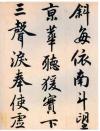 斜每依南斗望
京華聽猿實下
三聲淚奉使虛